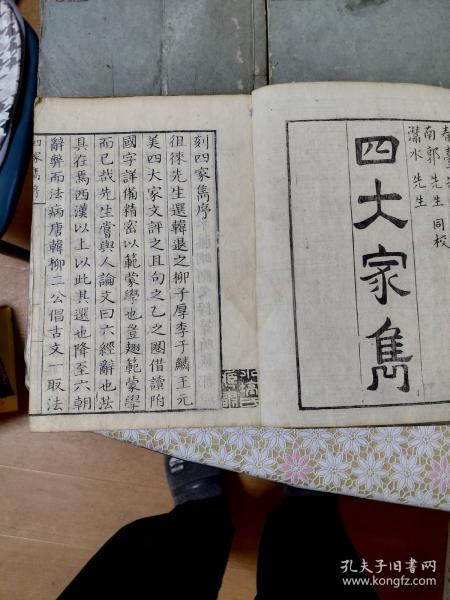 南郭先生 同校
灊水先生
四大家雋
刻四家雋序
徂徠先生選韓退之柳子厚李于鱗王元
美四大家文評之且句之乙之圈借讀附
國字詳備精密以範蒙學也豈翅範蒙學
而已哉先生嘗與人論文曰六經辭也法
具在焉西漢以上以此其選也降至六朝
辭弊而法病唐韓柳二公倡古文一取法
四家雋序
孔夫子旧书网
www.kongfz.com